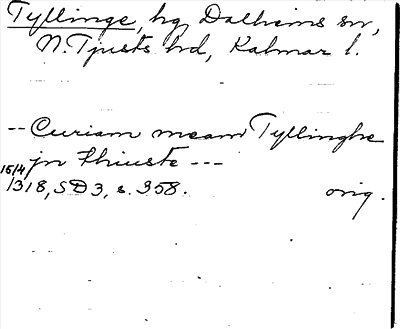 Tyllinge, hg, Dalhems sn,
N. Tjusts hd, Kalmar l.
-- Curiam meam Tyllinghe
jn thiuste ---
15/4
1318, SD3, s. 358. orig.